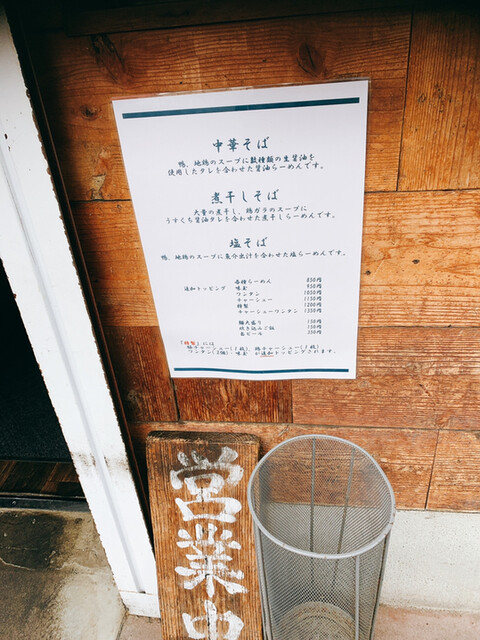 中華そば
鴨、地鶏のスープに数種類の生醤油を
使用したタレを合わせた醤油らーめんです。
煮干しそば
大量の煮干し、鶏ガラのスープに
うすくち醤油タレを合わせた煮干しらーめんです。
塩そば
鴨、地鶏のスープに魚介出汁を合わせた塩らーめんです。
各種らーめん 850円
追加トッピング 味玉 950円
ワンタン 1050円
チャーシュー 1150円
特製 1200円
チャーシューワンタン 1350円
麺大盛り 150円
炊き込みご飯 150円
缶ビール 350円
「特製」には
豚チャーシュー(1枚)、鶏チャーシュー(1枚)
ワンタン(2個)・味玉 が追加トッピングされます。
営業中